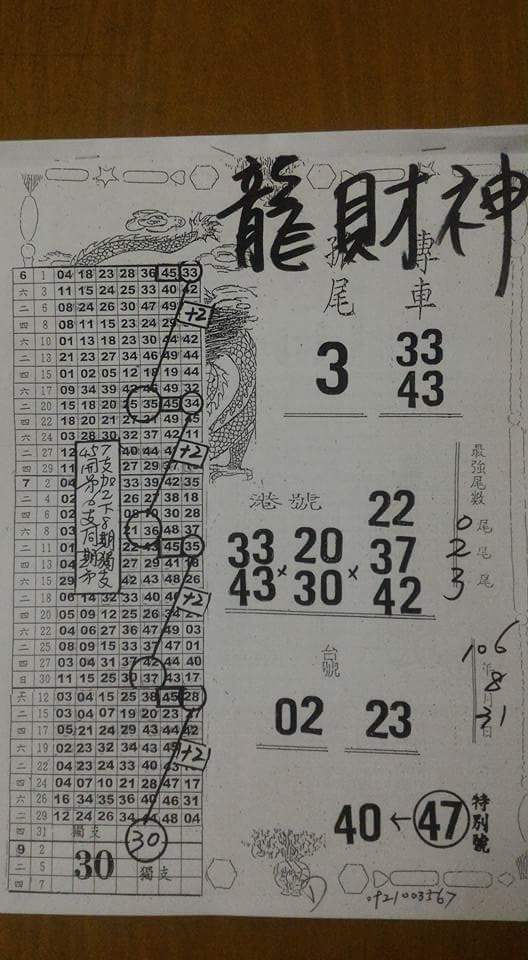 龍財神
6 1 04 18 23 28 36 45 33
六 3 11 15 24 25 33 40 42
二 6 08 24 26 30 47 49
四 8 08 11 15 23 24
六 10 01 13 18 23 30 44 42
二 13 21 23 27 34 46 49 44
四 15 01 02 05 12 18 19 44
六 17 09 34 39 42 49 32
二 20 15 18 20 25 35 45 34
四 22 18 20 21 27 31 49 45
六 24 03 28 30 32 37 42 11
二 27 12 40 44
四 29 11 27 29 37
7 2 04 33 39 42 35
四 02 26 27 38 18
六 02 30 28
六 8 03 21 36 48 37
二 11 01 22 43 45 35
四 13 04 27 29 41 18
六 15 29 42 43 48 26
二 18 06 14 32 33 40
四 20 05 09 12 25 26 34
六 22 04 06 27 36 47 49 03
二 25 08 09 15 33 37 47 01
四 27 03 04 31 37 42 44 40
日 30 11 15 25 30 37 43 17
六 12 03 04 15 25 38 45 28
二 15 03 04 07 19 20 23
四 17 05 21 24 29 43 44 42
六 19 02 23 32 34 43 45
二 22 04 23 24 33 40 43
四 24 04 07 10 21 28 47 17
六 26 16 34 35 36 40 46 31
二 29 12 24 26 34 48 04
四 31 獨支
9 2
二 5 30 獨支
四 7
+2
+2
+2
+2
30
45開第6支同期第
7支加2下8期獨支
孤尾
專車
3
33
43
港號
33
43
×
20
30
×
22
37
42
最強尾數
0尾
2尾
3尾
台號
02 23
106年
8月
31日
40←47
特別號
0921003567